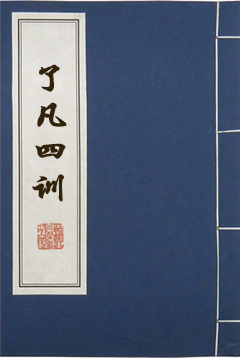 了凡四训